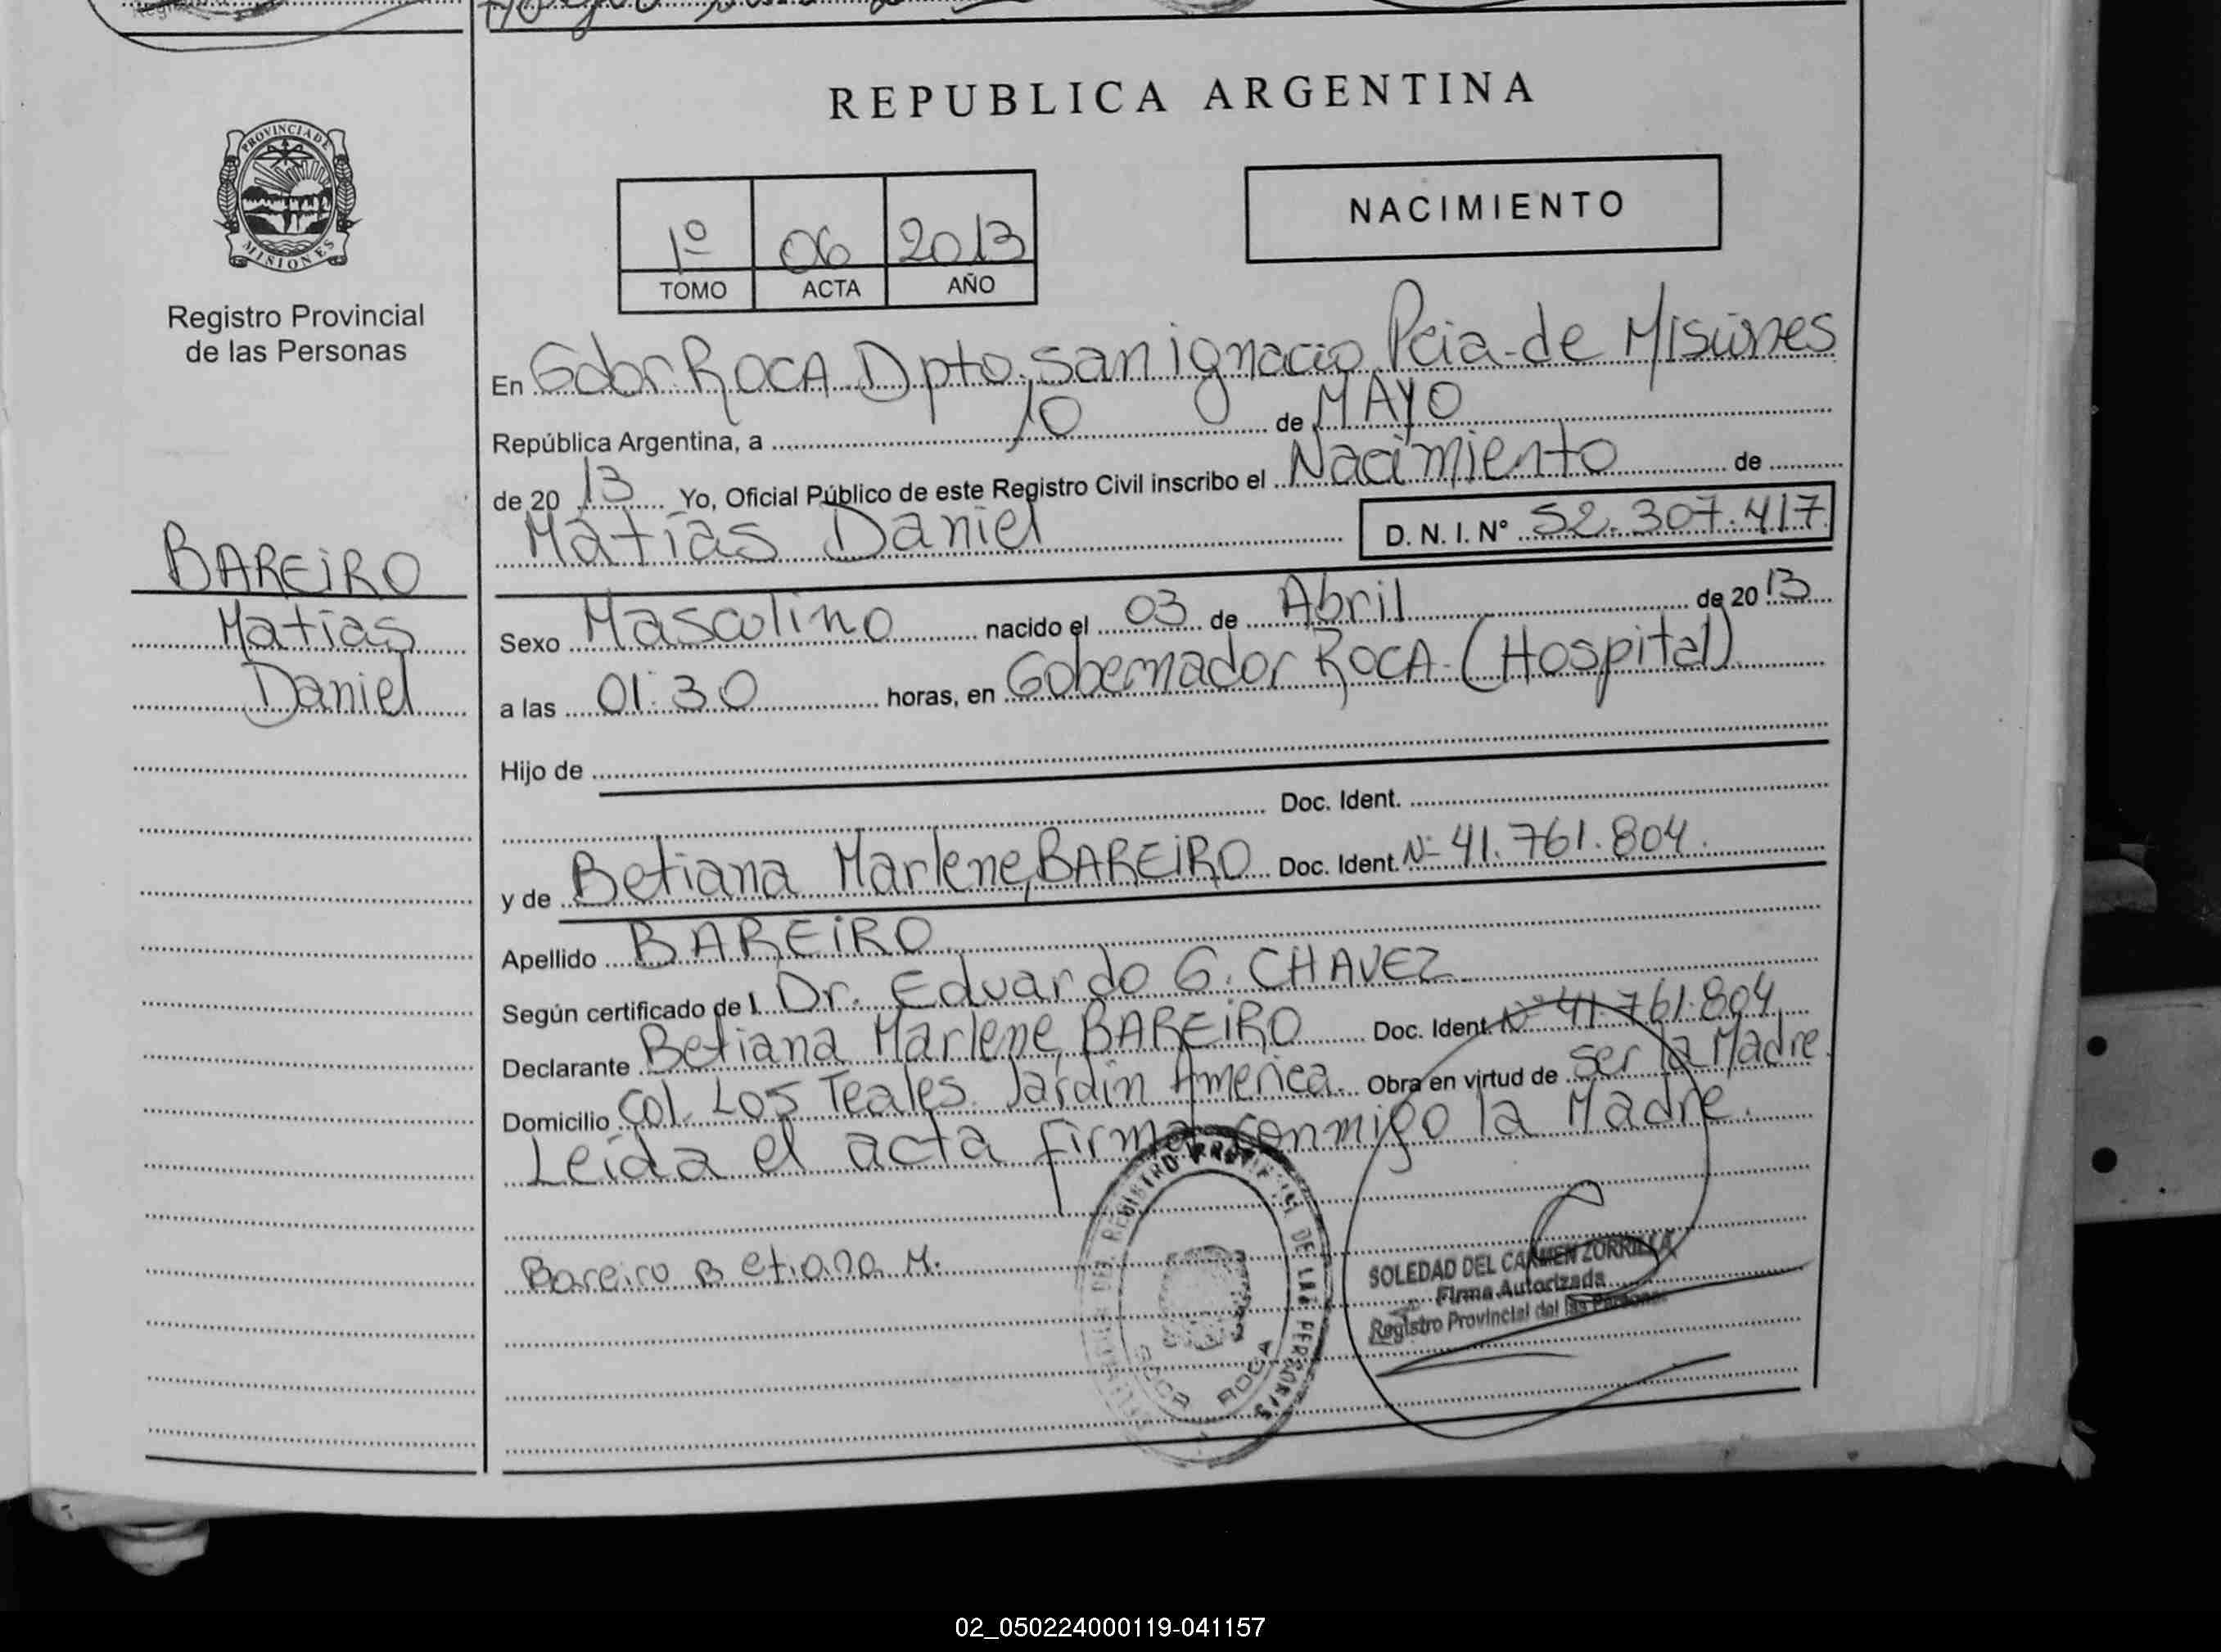 REPUBLICA ARGENTINA
PROVINCIA DE
MISIONES
Registro Provincial
de las Personas
1º 06 2013
TOMO ACTA AÑO
NACIMIENTO
En Gdor ROCA Dpto. San ignacio Pcia de Misiones
República Argentina, a 10 de MAYO
de 20 13 Yo, Oficial Público de este Registro Civil inscribo el Nacimiento de
Matías Daniel D. N. I. Nº 52.307.417
BAREiRO
Matías
Daniel
Sexo Masculino nacido el 03 de Abril de 20 13
a las 01:30 horas, en Gobernador ROCA - (Hospital)
Hijo de
Doc. Ident.
y de Betiana Marlene, BAREiRO Doc. Ident. Nº 41.761.804.
Apellido BAREiRO
Según certificado de l Dr. Eduardo G. CHAVEZ
Declarante Betiana Marlene, BAREiRO Doc. Ident. Nº 41.761.804
Domicilio Col. Los Teales. Jardín América. Obra en virtud de ser la Madre.
Leída el acta firma conmigo la Madre.
Bareiro Betiana M.
REGISTRO PROVINCIAL DE LAS PERSONAS
ROCA
SOLEDAD DEL CARMEN ZORRILLA
Firma Autorizada
Registro Provincial del las Personas
02_050224000119-041157